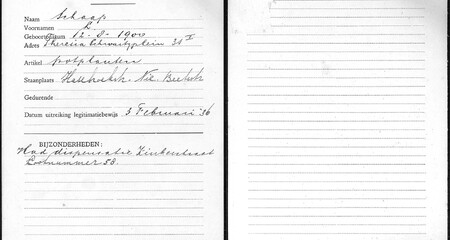 Naam Schaap
Voornamen L.
Geboortedatum 12-8-1900
Adres Theresia Schwartzeplein 31 I
Artikel potplanten
Staanplaats
Gedurende
Datum uitreiking legitimatiebewijs 3 Februari '36
BIJZONDERHEDEN:
Had dispensatie Lindenstraat
Lotnummer 58.